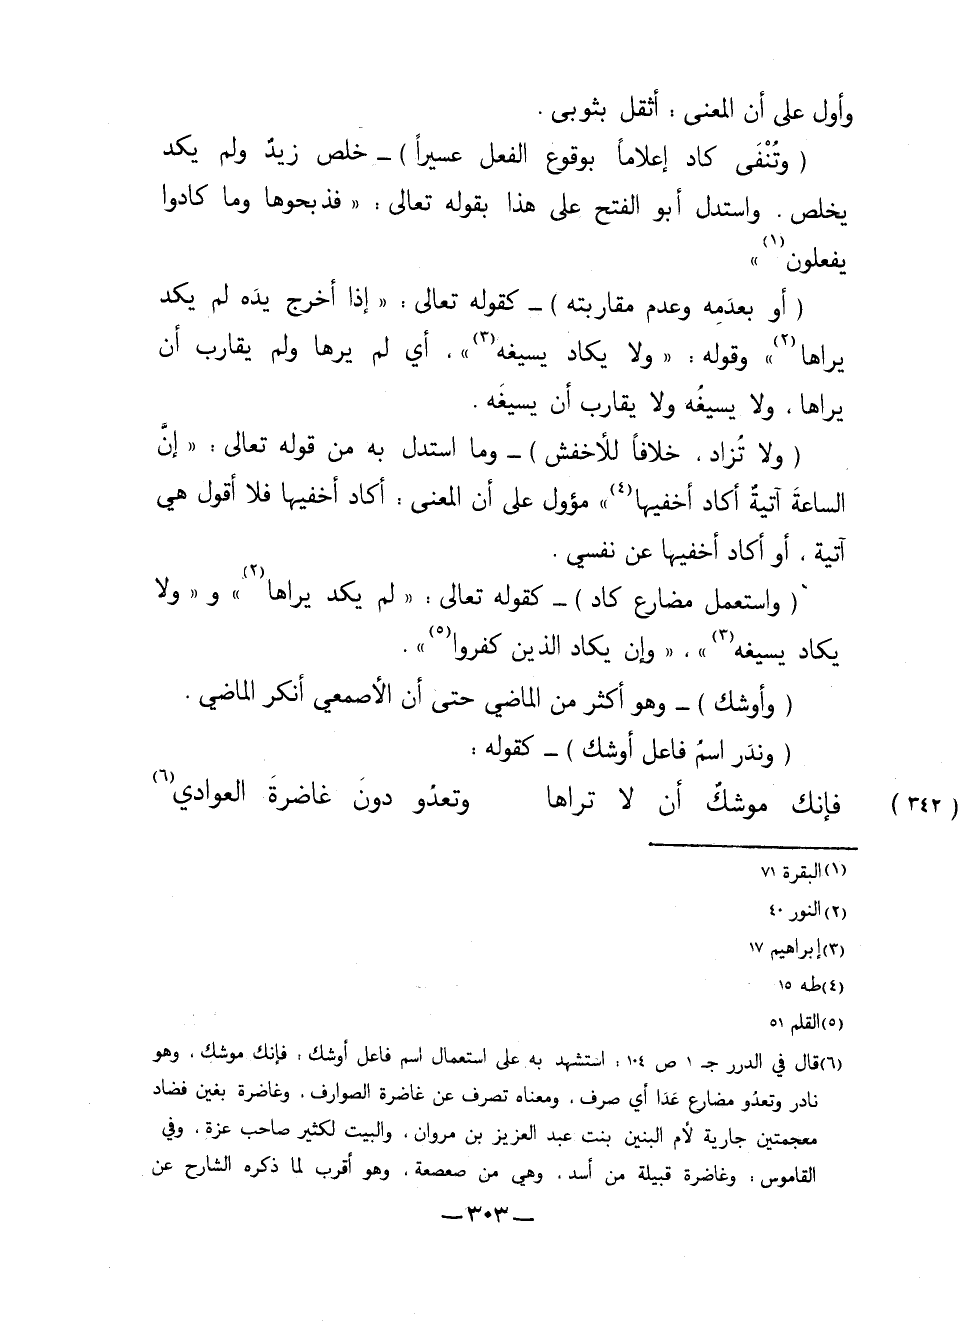 وأول على أن المعنى : أثقل بثوبي .
( وتُنْفَى كاد إعلاماً بوقوع الفعل عسيراً ) ــ خلص زيدٌ ولم يكد
يخلص . واستدل أبو الفتح على هذا بقوله تعالى : « فذبحوها وما كادوا
يفعلون(١) »
( أو بعدَمِه وعدم مقاربته ) ــ كقوله تعالى : « إذا أخرج يدَه لم يكد
يراها(٢)» وقوله : « ولا يكاد يسيغه(٣)» ، أي لم يرها ولم يقارب أن
يراها ، ولا يسيغُه ولا يقارب أن يسيغَه .
( ولا تُزاد ، خلافاً للأخفش ) ــ وما استدل به من قوله تعالى : « إنَّ
الساعةَ آتيةٌ أكاد أخفيها(٤)» مؤول على أن المعنى : أكاد أخفيها فلا أقول هي
آتية ، أو أكاد أخفيها عن نفسي .
( واستعمل مضارع كاد ) ــ كقوله تعالى : « لم يكد يراها(٢)» و « ولا
يكاد يسيغه(٣)» ، « وإن يكاد الذين كفروا(٥)» .
( وأوشك ) ــ وهو أكثر من الماضي حتى أن الأصمعي أنكر الماضي .
( وندَر اسمُ فاعل أوشك ) ــ كقوله :
( ٣٤٢ ) فإنك موشكٌ أن لا تراها وتعدُو دونَ غاضرةَ العوادي(٦)
(١) البقرة ٧١
(٢) النور ٤٠
(٣) إبراهيم ١٧
(٤) طه ١٥
(٥) القلم ٥١
(٦) قال في الدرر جـ ١ ص ١٠٤ : استشهد به على استعمال اسم فاعل أوشك : فإنك موشك ، وهو
نادر وتعدُو مضارع عَدَا أي صرف ، ومعناه تصرف عن غاضرة الصوارف ، وغاضرة بغين فضاد
معجمتين جارية لأم البنين بنت عبد العزيز بن مروان ، والبيت لكثير صاحب عزة ، وفي
القاموس : وغاضرة قبيلة من أسد ، وهي من صعصعة ، وهو أقرب لما ذكره الشارح عن
ــ ٣٠٣ ــ